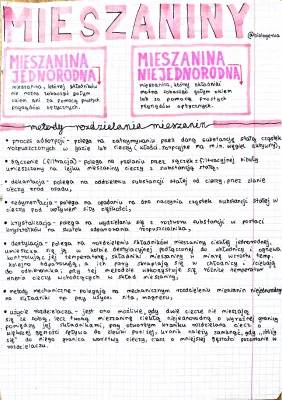 MIESZANINY
@biologonka
MIESZANINA
JEDNORODNA
mieszanina, której składników
nie można zobaczyć gołym
okiem ani za pomocą prostych
przyrządów optycznych.
MIESZANINA
NIEJEDNORODNA
mieszanina, której składniki
można zobaczyć gołym okiem
lub za pomocą prostych
przyrządów optycznych.
metody rozdzielania mieszanin
• proces adsorpcji - polega na zatrzymywaniu przez daną substancję stałą cząstek
rozpuszczonego gazu lub cieczy (składu np. m.in. węgiel aktywny),
• sączenie (filtracja) - polega na przelaniu przez sączek z filtracyjnej bibuły
umieszczony na lejku mieszaniny cieczy z substancją stałą,
• dekantacja - polega na oddzieleniu substancji stałej od cieczy, przez zlanie
cieczy znad osadu,
• sedymentacja - polega na opadaniu na dno naczynia cząstek substancji stałej w
cieczy pod wpływem siły ciężkości,
• krystalizacja - polega na wydzielaniu się z roztworu substancji w postaci
kryształów na skutek odparowania rozpuszczalnika,
• destylacja - polega na rozdzieleniu składników mieszaniny ciekłej jednorodnej,
umieszcza się ją w kolbie destylacyjnej podłączonej do chłodnicy i ogrzewa
kontrolując jej temperaturę, składniki mieszaniny w miarę wzrostu temp.
kolejno odparowują, a ich pary skraplają się w chłodnicy i ściekają
do odbieralnika, przy tej metodzie wykorzystuje się różnicę temperatur
wrzenia cieczy wchodzących w skład mieszaniny,
• metody mechaniczne - polegają na mechanicznym rozdzieleniu mieszanin niejednorodnych
na składniki np. przy użyciu sita, magnesu,
• użycie rozdzielacza - jest ono możliwe, gdy dwie ciecze nie mieszają
się ze sobą, lecz tworzą mieszaninę ciekłą niejednorodną o wyraźnej granicy
pomiędzy jej składnikami, przy otwartym kraniku rozdzielacza ciecz o
większej gęstości spływa do zlewki poniżej, kranik należy zamknąć, gdy „zbliży
się" do niego granica warstwy cieczy, ciecz o mniejszej gęstości pozostanie w
rozdzielaczu.